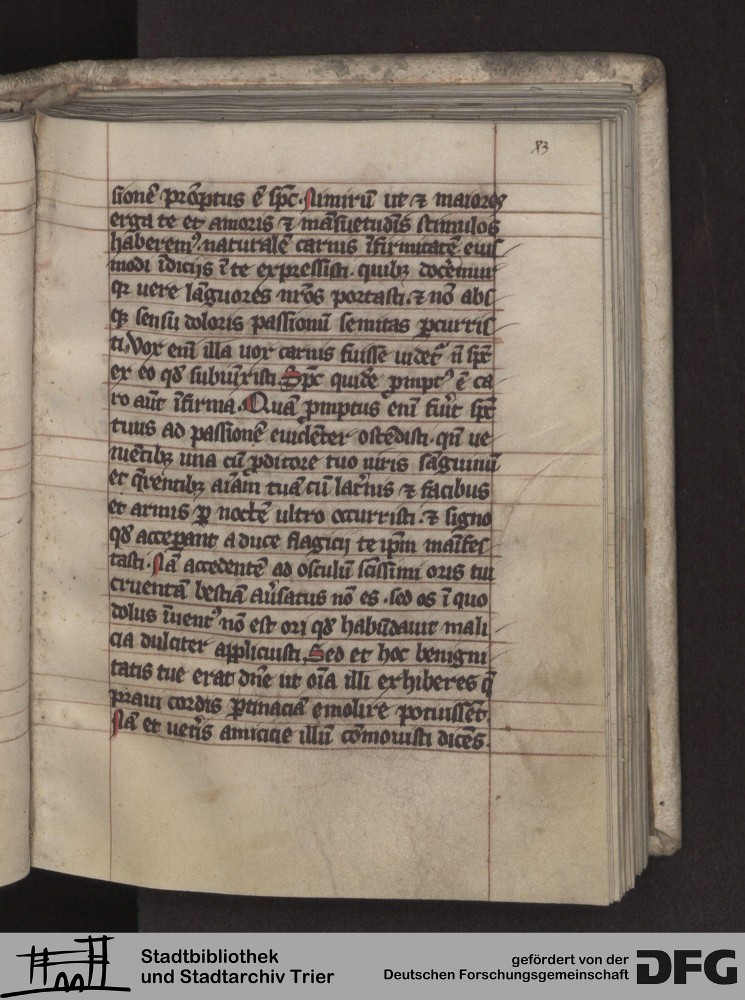 83
sionē prōptus ē spc̄. Nimirū ut ⁊ maiores
erga te et amoris ⁊ māsuetudīs stimulos
haberemꝰ. naturalē carnis īfirmitatē eius
modi īdicijs ī te expressisti. quibꝫ docēmur
qꝛ uere lāguores nrōs portasti. ⁊ nō abs
qꝫ sensu doloris passionū semitas ꝑcurris
ti. Vox enī illa uox carnis fuisse uidet᷑ n̄ spc̄
ex eo qđ subiūxisti. Spc̄ quidē ꝓmptꝰ ē ca
ro aūt īfirma. Quā ꝓmptus enī fuīt spc̄
tuus ad passionē euidēter ostēdisti. qn̄ ue
niētibꝫ una cū ꝓditore tuo uiris sāguinū
et q̄rentibꝫ aīam tuā cū lat̄nis ⁊ facibus
et armis ꝑ noctē ultro occurristi. ⁊ signo
qđ acceꝑant a duce flagicij te ipm̄ maīfes
tasti. Nā accedentē ad osculū scīssimi oris tui
cruentā bestiā aūsatus nō es. sed os ī quo
dolus īuentꝰ nō est ori qđ habūdauit mali
cia dulciter applicuisti. Sed et hoc benigni
tatis tue erat dn̄e ut oīa illi exhiberes q̄
praui cordis ꝑtinaciā emolire potuissēt.
Nā et uet̄is amicicie illū cōmouisti dicēs.
Stadtbibliothek
und Stadtarchiv Trier
gefördert von der
Deutschen Forschungsgemeinschaft
DFG